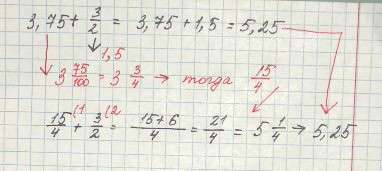 3,75 + 3/2 = 3,75 + 1,5 = 5,25
1,5
3 75/100 = 3 3/4 → тогда 15/4
15/4 (1 + 3/2 (2 = 15+6/4 = 21/4 = 5 1/4 → 5,25